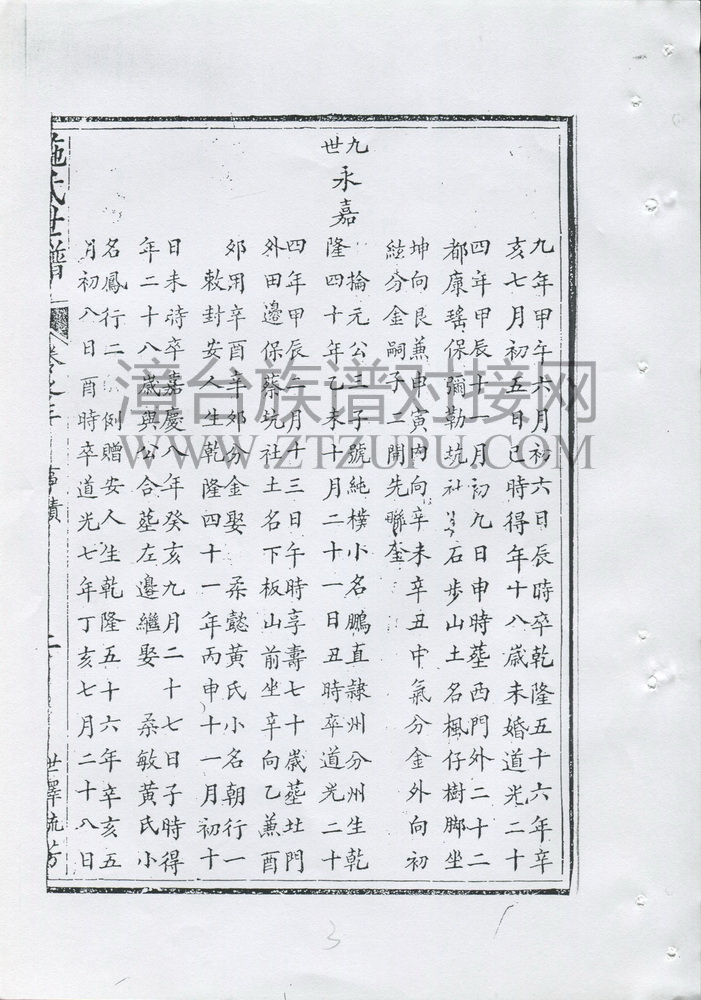 九年甲午六月初六日辰時卒乾隆五十六年辛
亥七月初五日巳時得年十八歲未婚道光二十
四年甲辰十一月初九日申時塟西門外二十二
都康瑤保彌勒坑社石步山土名楓仔樹脚坐
坤向艮兼申寅内向辛未辛丑中氣分金外向初
絃分金嗣子二開先聯奎
九世
永嘉
掄元公三子號純樸小名鵬直隷州分州生乾
隆四十年乙未十月二十一日丑時卒道光二十
四年甲辰二月十三日午時享壽七十歲塟北門
外田邊保蔡坑社土名下板山前坐辛向乙兼酉
邜用辛酉辛邜分金娶柔懿黃氏小名朝行一
敕封安人生乾隆四十一年丙申十一月初十
日未時卒嘉慶八年癸亥九月二十七日子時得
年二十八歲與公合塟左邊繼娶柔敏黃氏小
名鳳行二例贈安人生乾隆五十六年辛亥五
月初八日酉時卒道光七年丁亥七月二十八日
施氏世譜
卷之
事蹟
二
世澤流芳
3
漳台族谱对接网
WWW.ZTZUPU.COM